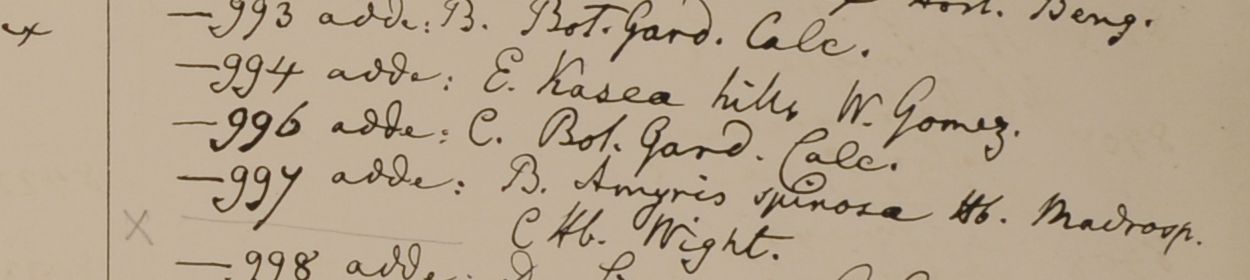 Hort. Beng.
—993 adde: B. Bot. Gard. Calc.
—994 adde: E. Kasea hills W. Gomez.
—996 adde: C. Bot. Gard. Calc.
—997 adde: B. Amyris spinosa Hb. Madrasp.
C Hb. Wight.
—998 adde: